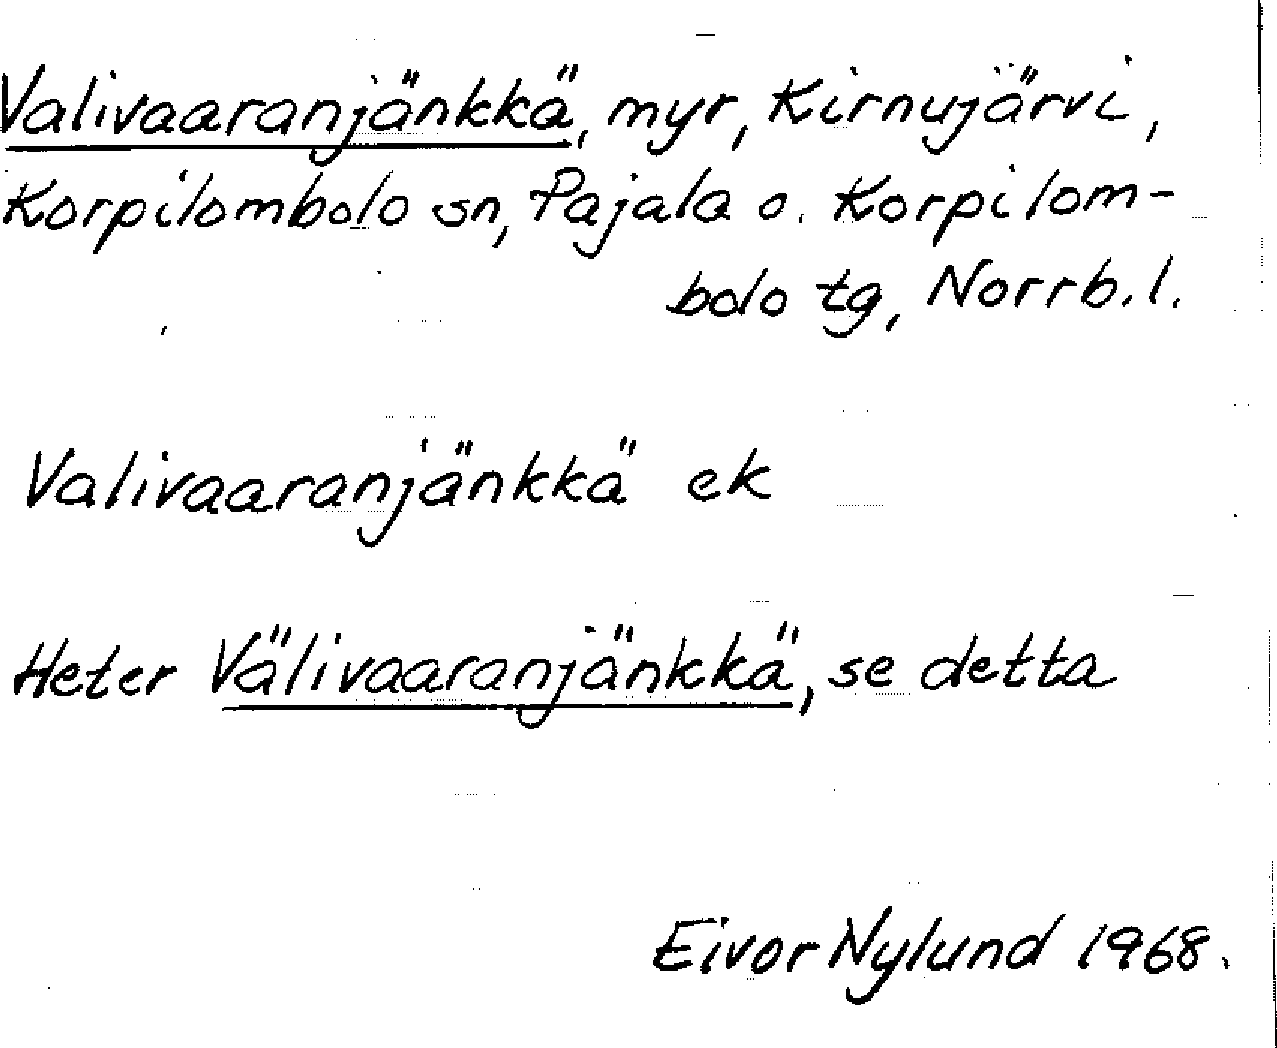 Valivaaranjänkkä, myr, Kirnujärvi,
Korpilombolo sn, Pajala o. Korpilom-
bolo tg, Norrb.l.
Valivaaranjänkkä ek
Heter Välivaaranjänkkä, se detta
Eivor Nylund 1968.